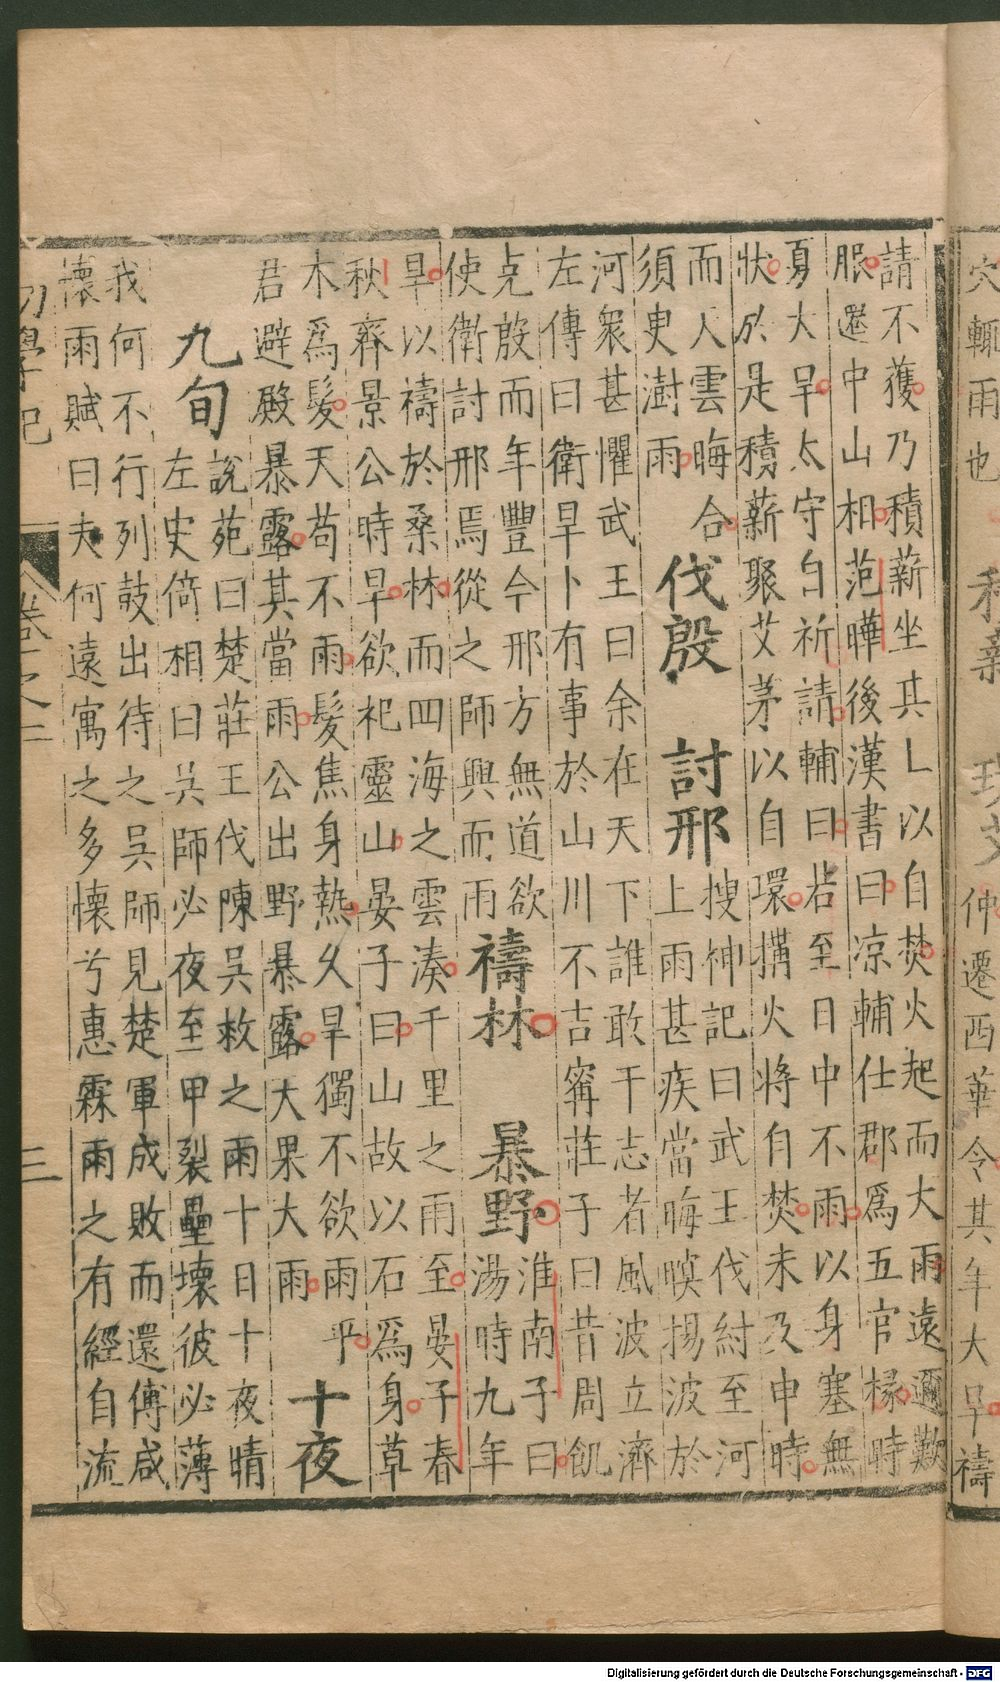 穴輒雨也
仲遷西華令其年大旱禱
請不獲乃積薪坐其上以自焚火起而大雨遠邇歎
服還中山相范曄後漢書曰凉輔仕郡爲五官掾時
夏大旱太守自祈請輔曰若至日中不雨以身塞無
狀於是積薪聚艾茅以自環搆火將自焚未及申時
而人雲晦合
須臾澍雨
伐殷 討邢
搜神記曰武王伐紂至河
上雨甚疾當晦暝揚波於
河衆甚懼武王曰余在天下誰敢干志者風波立濟
左傳曰衛旱卜有事於山川不吉甯莊子曰昔周飢
克殷而年豐今邢方無道欲
使衛討邢焉從之師興而雨
禱林 暴野
淮南子曰
湯時九年
旱以禱於桑林而四海之雲湊千里之雨至晏子春
秋齊景公時旱欲祀靈山晏子曰山故以石爲身草
木爲髮天苟不雨髮焦身熱久旱獨不欲雨乎
君避殿暴露其當雨公出野暴露大果大雨
十夜
九旬
說苑曰楚莊王伐陳吳救之雨十日十夜晴
左史倚相曰吳師必夜至甲裂壘壞彼必薄
我何不行列鼓出待之吳師見楚軍成敗而還傅咸
懷雨賦曰夫何遠寓之多懷兮惠霖雨之有經自流
初學記 卷之二 三
Digitalisierung gefördert durch die Deutsche Forschungsgemeinschaft - DFG